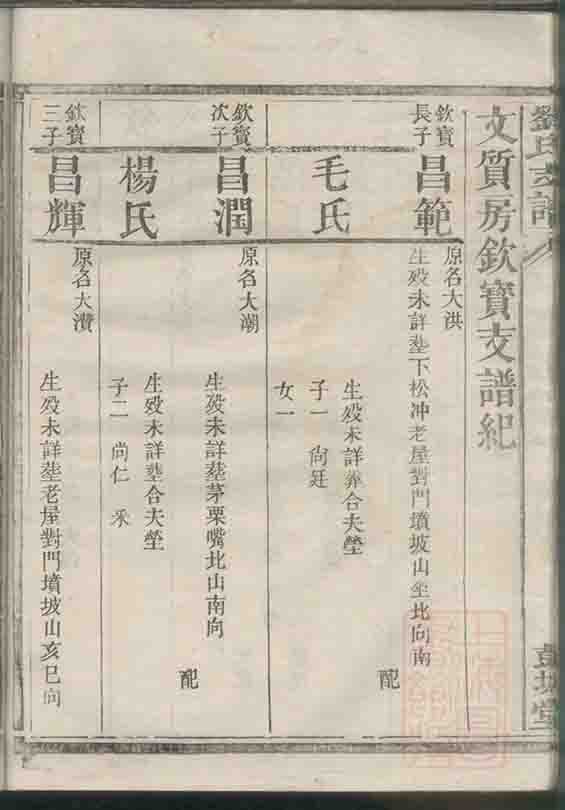 劉氏支譜
彭城堂
文質房欽寶支譜紀
欽寶
長子
昌範
原名大洪
生歿未詳塟下松冲老屋對門墳坡山坐北向南
配
毛氏
生歿未詳葬合夫塋
子一 尙廷
女一
欽寶
次子
昌潤
原名大潮
生歿未詳塟茅栗嘴北山南向
配
楊氏
生歿未詳塟合夫塋
子二 尙仁 釆
欽寶
三子
昌輝
原名大瓚
生歿未詳塟老屋對門墳坡山亥巳向